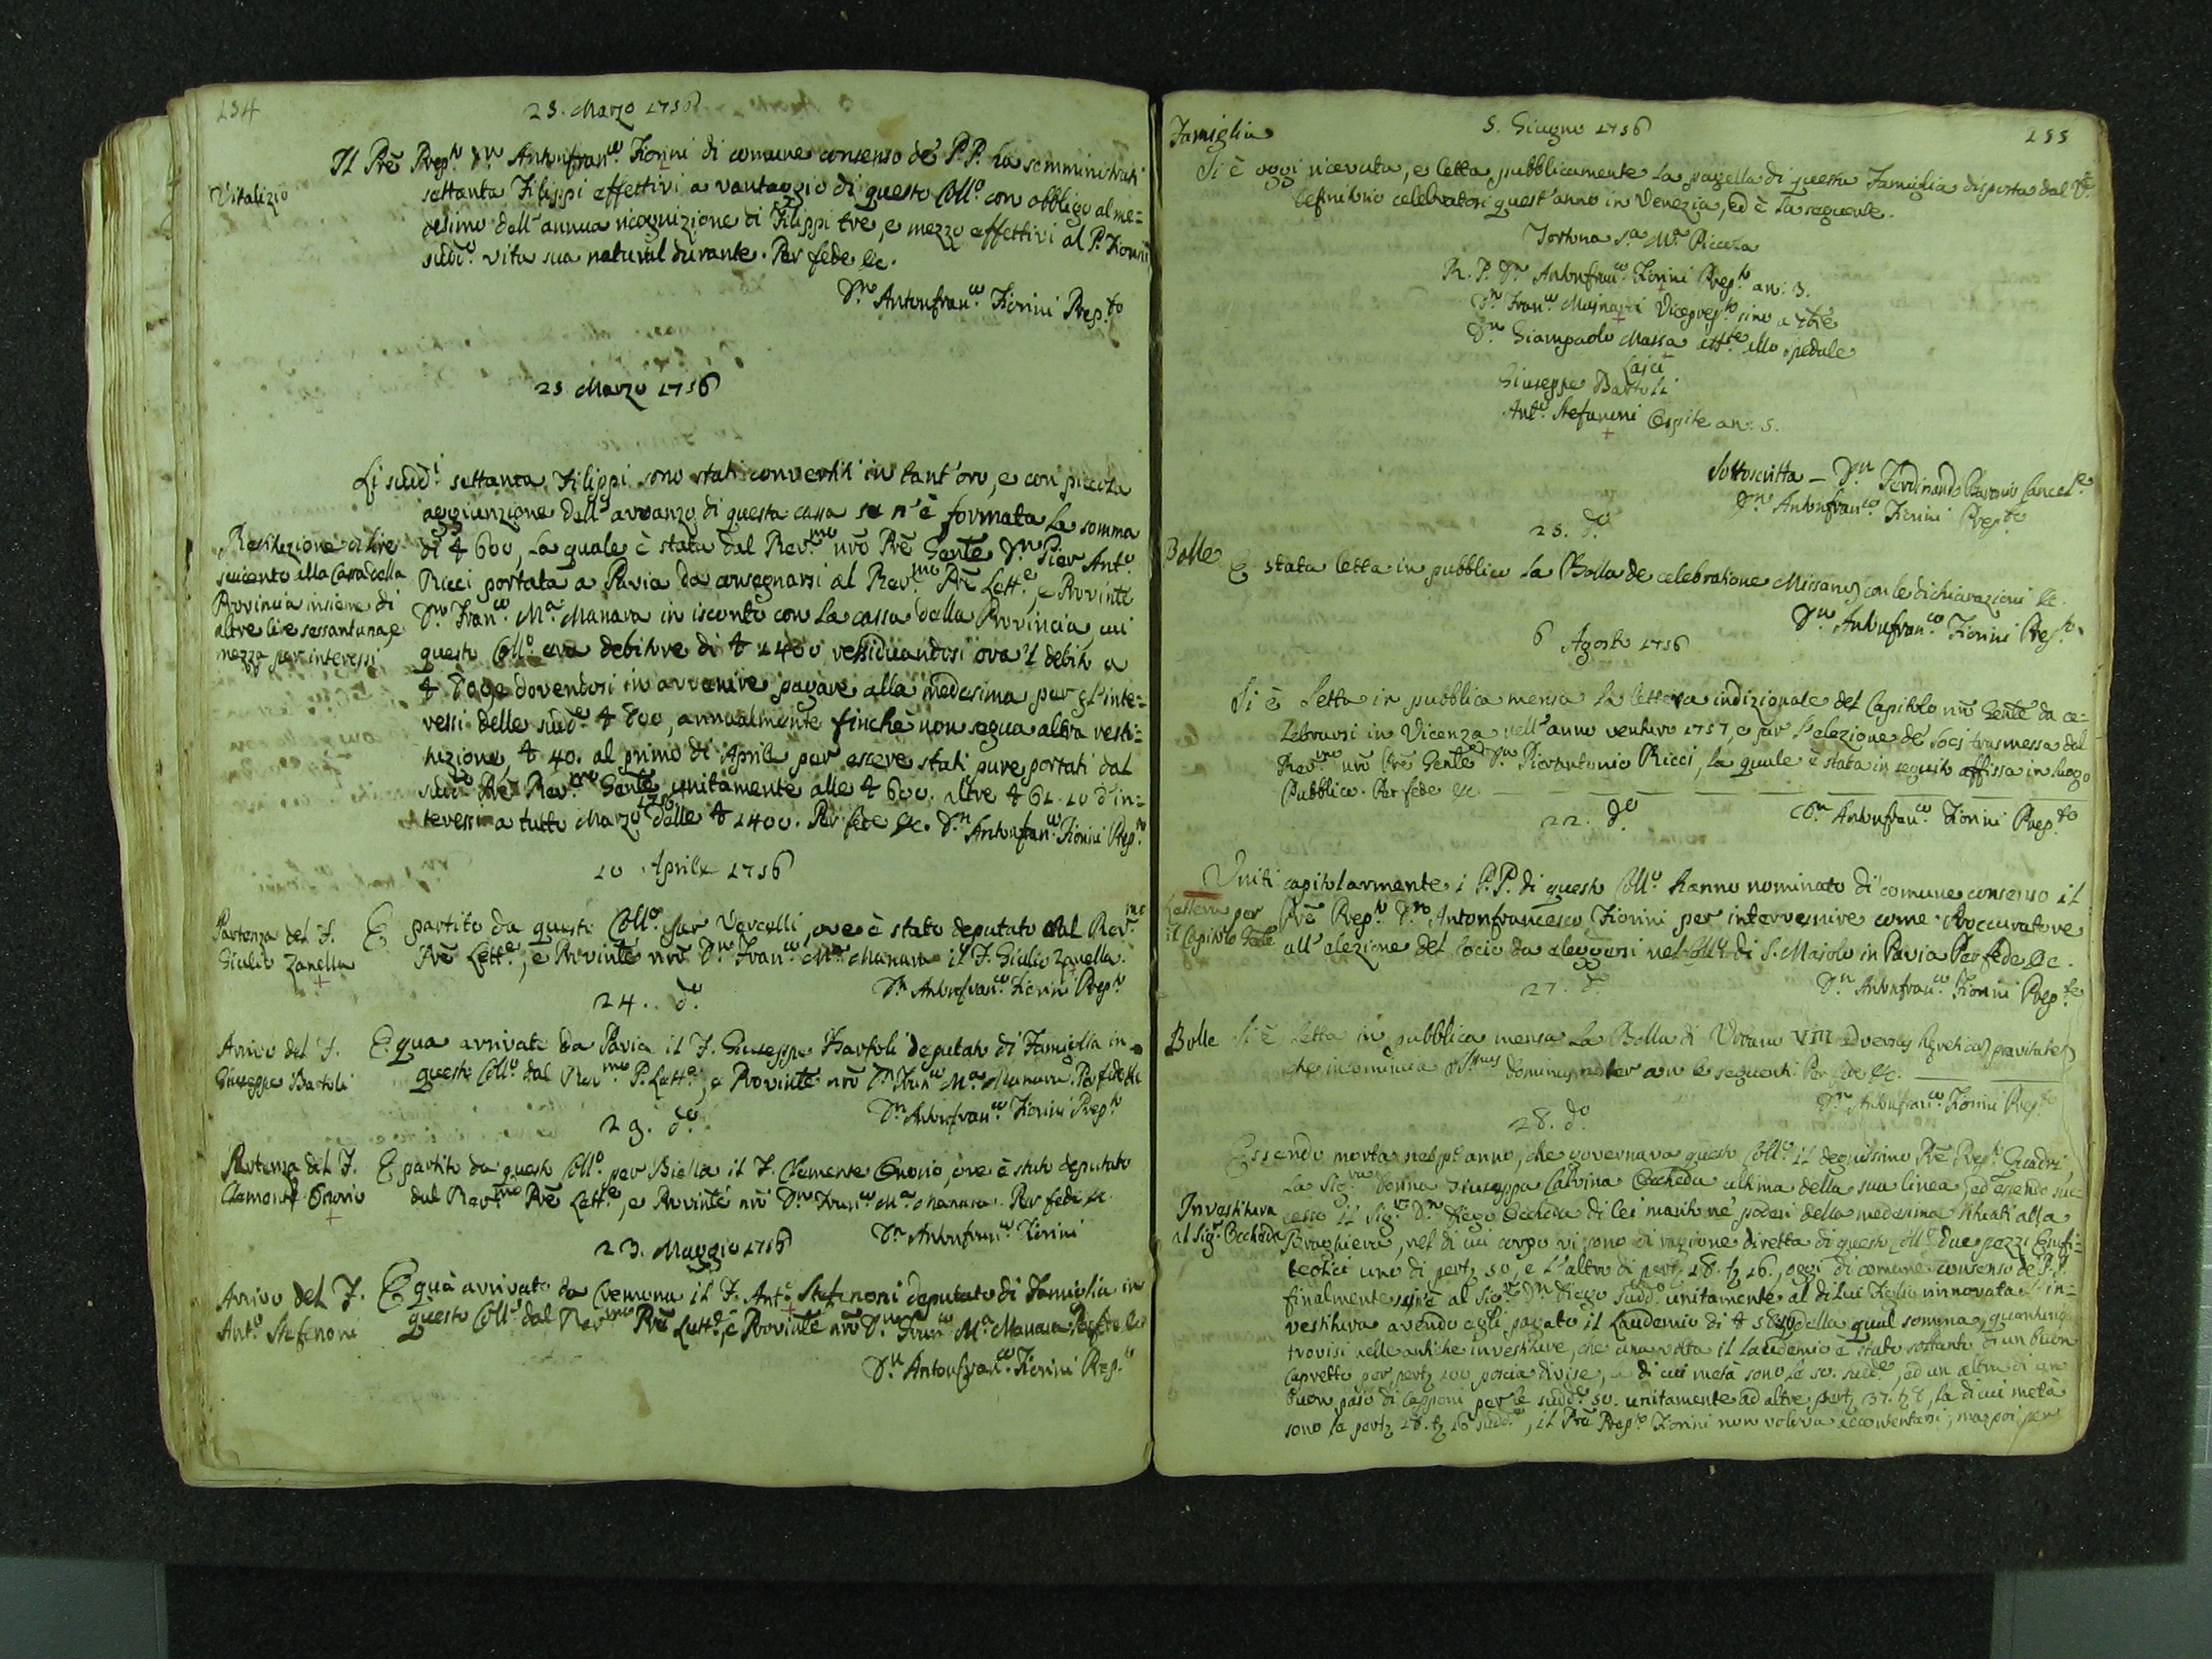 154
23. Marzo 1756
Vitalizio
Il Prē Prep.to D.n Antonfran.co Fiorini di comune consenso de' P.P. ha somministrati
settanta Filippi effettivi a vantaggio di questo Coll.o con obbligo al me=
desimo dell'annua ricognizione di Filippi tre, e mezzo effettivi al P. Fiorini
sudd.o vita sua natural durante. Per fede &c.
D.n Antonfran.co Fiorini Prep.to
25 Marzo 1756
Restituzione di lire
seicento alla Cassa della
Provincia insieme di
altre lire sessantuna, e
mezza per interessi
Li sudd.i settanta Filippi sono stati convertiti in tant'oro, e con piccola
aggiunzione dell'avvanzo di questa cassa se n'è formata la somma
di ₤ 600, la quale è stata dal Rev.mo nrō Prē Genle D.n Pier Ant.o
Ricci portata a Pavia da consegnarsi al Rev.mo Prē Lett.e, e Provinle
D.n Fran.co M.a Manara in isconto con la cassa della Provincia, cui
questo Coll.o era debitore di ₤ 1400 residuandosi ora 'l debito a
₤ 800, e dovendosi in avvenire pagare alla medesima per gl'inte=
ressi delle sudd.e ₤ 800, annualmente finchè non segua altra resti=
tuzione, ₤ 40. al primo di Aprile per essere stati pure portati dal
sudd.o Prē Rev.mo Genle unitamente alle ₤ 600. altre ₤ 61.10 d'in=
teressi a tutto Marzo 1756 delle ₤ 1400. Per fede &c. D.n Antonfran.co Fiorini Prep.to
10 Aprile 1756
Partenza del F.
Giulio Zanella
È partito da questo Coll.o per Vercelli, ove è stato deputato dal Rev.mo
Prē Lett.e, e Provinle nrō D.n Fran.co M.a Manara il F. Giulio Zanella.
D.n Antonfran.co Fiorini Prep.to
24. d.o
Arrivo del F.
Giuseppe Bartoli
È qua arrivato da Pavia il F. Giuseppe Bartoli deputato di Famiglia in
questo Coll.o dal Rev.mo P. Lett.e, e Provinle nrō D.n Fran.co M.a Manara. Per fede &c
D.n Antonfran.co Fiorini Prep.to
29. d.o
Partenza del F.
Clemente Onorio
È partito da questo Coll.o per Biella il F. Clemente Onorio, ove è stato deputato
dal Rev.mo Prē Lett.e, e Provinle nrō D.n Fran.co M.a Manara. Per fede &c
D.n Antonfran.co Fiorini
23. Maggio 1756
Arrivo del F.
Ant.o Stefenoni
È quà arrivato da Cremona il F. Ant.o Stefenoni deputato di Famiglia in
questo Coll.o dal Rev.mo Prē Lett.e, e Provinle nrō D.n Fran.co M.a Manara Per fede &c
D.n Antonfran.co Fiorini Prep.to
155
5. Giugno 1756
Famiglia
Si è oggi ricevuta, e letta pubblicamente la pagella di questa Famiglia disposta dal V.e
Definitorio celebratosi quest'anno in Venezia, ed è la seguente.
Tortona S.a M.a Piccola
R. P. D.n Antonfran.co Fiorini Prep.to an: 3.
D.n Fran.co Mainardi Viceprep.to sino a
D.n Giampaolo Massa allo spedale
Laici
Giuseppe Bartoli
Ant.o Stefanoni Ospite an: 5.
Sottoscritta — D.n Ferdinando Cancel.e
D.n Antonfran.co Fiorini Prep.to
25. d.o
Bolle
È stata letta in pubblico la Bolla de celebratione Missarum con le dichiarazioni &c.
D.n Antonfran.co Fiorini Prep.to
6 Agosto 1756
Lettera per
il Capitolo Genle
Si è letta in pubblica mensa la lettera indizionale del Capitolo nrō Genle da ce=
lebrarsi in Vicenza nell'anno venturo 1757, e per l'elezione de' Socj trasmessa dal
Rev.mo nrō Prē Genle D.n Pierantonio Ricci, la quale è stata in seguito affissa in luogo
Pubblico. Per fede &c.
D.n Antonfran.co Fiorini Prep.to
22. d.o
Uniti capitolarmente i P.P. di questo Coll.o hanno nominato di comune consenso il
Prē Prep.to D.n Antonfrancesco Fiorini per intervenire come Proccuratore
all'elezione del Socio da eleggersi nel Coll.o di S. Majolo in Pavia Per fede &c.
D.n Antonfran.co Fiorini Prep.to
27. d.o
Bolle
Si è letta in pubblica mensa la Bolla di Urbano VIII adversus hereticam pravitatem
che incomincia Dominus noster con le seguenti Per fede &c.
D.n Antonfran.co Fiorini Prep.to
28. d.o
Investitura
al Sig.r Occheda
Essendo morta nel anno, che governava questo Coll.o il degnissimo Prē Prep.to Quadri
la Sig.ra Donna Giuseppa Calvina Occheda ultima della sua linea, ed essendo suc=
cesso il Sig.r D.n Diego Occheda di lei marito ne' poderi della medesima situati alla
Braghiera, nel di cui corpo vi sono di ragione diretta di questo Coll.o due pezzi Enfi=
teotici uno di pert. 50, e l'altro di pert. 18. t. 16., oggi di comune consenso de' P.P.
finalmente si n'è al Sig.r D.n Diego sudd.o unitamente al di lui Figlio rinnovata l'in=
vestitura avendo egli pagato il Laudemio di ₤ della qual somma, quantunque
trovisi nelle antiche investiture, che una volta il laudemio è stato soltanto di un buon
capretto per pert. 100 poscia divise, e di cui metà sono le 50. sudd.e, ed un altro di un
buon pajo di Capponi per le sudd.e 50. unitamente ad altre pert. 37. t. 8, la di cui metà
sono le pert. 18. t. 16 sudd.e, il Prē Prep.to Fiorini non voleva accontentarsi, ma poi per